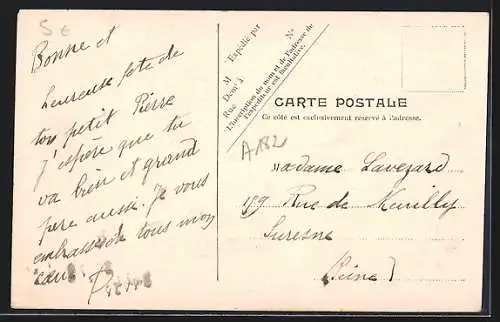 5 €
Bonne et
heureuse fete de
ton petit Pierre
j'espère que tu
va bien et grand
pere aussi. Je vous
embrasse de tous mon
cœur.
Expédié par
M
N°
Demt à
Rue
L'inscription du nom et de l'adresse de
l'expéditeur est facultative.
CARTE POSTALE
Ce côté est exclusivement réservé à l'adresse.
A182
Madame Lavezard
159 Rue de Neuilly
Suresne
(Seine)